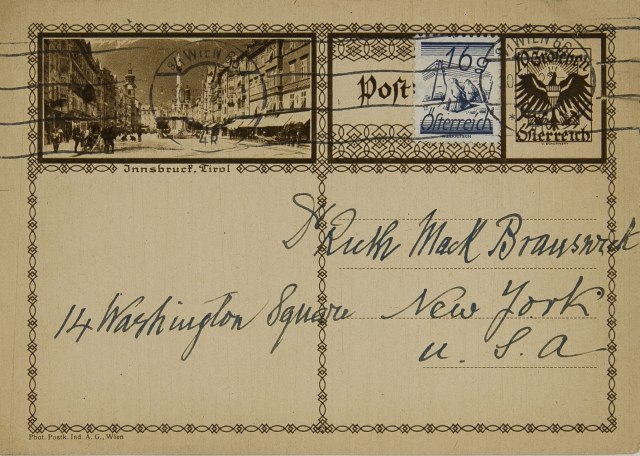 WIEN 68
WIEN 68
16g
Österreich
10 Groschen
Österreich
Post
Innsbruck, Tirol
Dr Ruth Mack Brunswick
14 Washington Square New York
U. S. A
Phot. Postk. Ind. A. G., Wien